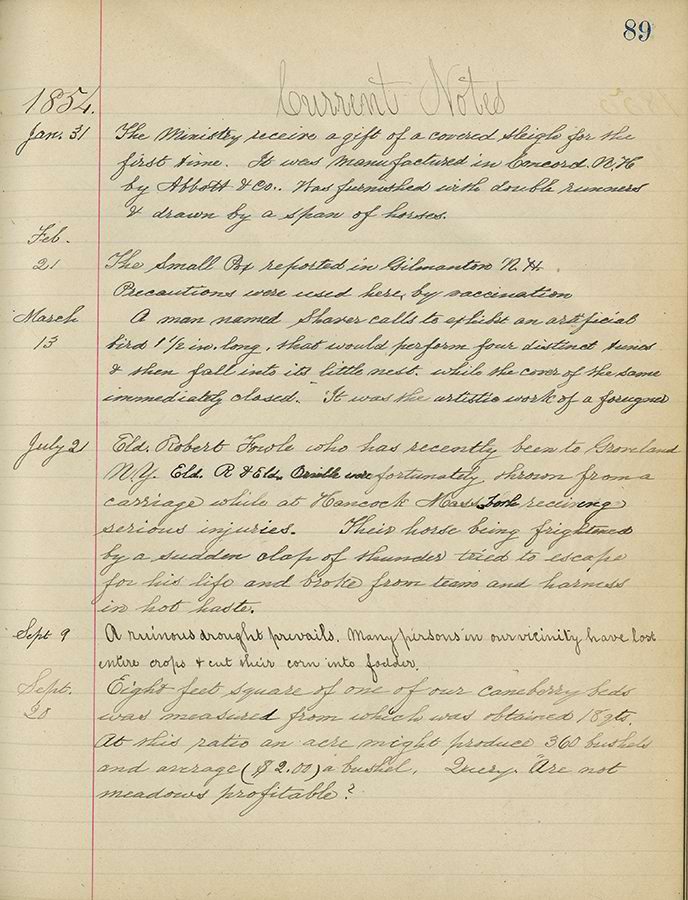 89
Current Notes
1854.
Jan. 31 The Ministry receive a gift of a covered sleigh for the
first time. It was manufactured in Concord. N.H
by Abbott & Co.. Was furnished with double runners
& drawn by a span of horses.
Feb.
21 The Small Pox reported in Gilmanton N.H.
Precautions were used here, by vaccination
March A man named Shaver calls to exhibit an artificial
13 bird 1 1/2 in. long, that would perform four distinct tunes
& then fall into its little nest, while the cover of the same
immediately closed. It was the artistic work of a foreigner
July 21 Eld. Robert Fowle who has recently been to Groveland
N.Y. Eld. R & Eld. were fortunately thrown from a
carriage while at Hancock Mass. both receiving
serious injuries. Their horse being frightened
by a sudden clap of thunder tried to escape
for his life and broke from team and harness
in hot haste.
Sept 9 A ruinous drought prevails. Many persons in our vicinity have lost
entire crops & cut their corn into fodder.
Sept. Eight feet square of one of our caneberry beds
20 was measured from which was obtained 18 qts.
At this ratio an acre might produce 360 bushels
and average ($2.00) a bushel. Query. Are not
meadows profitable?